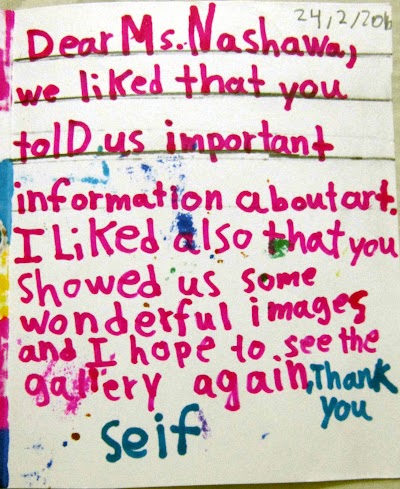 24,2/2016
Dear Ms. Nashawa,
we liked that you
tolD us important
information about art.
I Liked also that you
showed us some
wonderful images
and I hope to see the
gallery again, Thank
you
seif